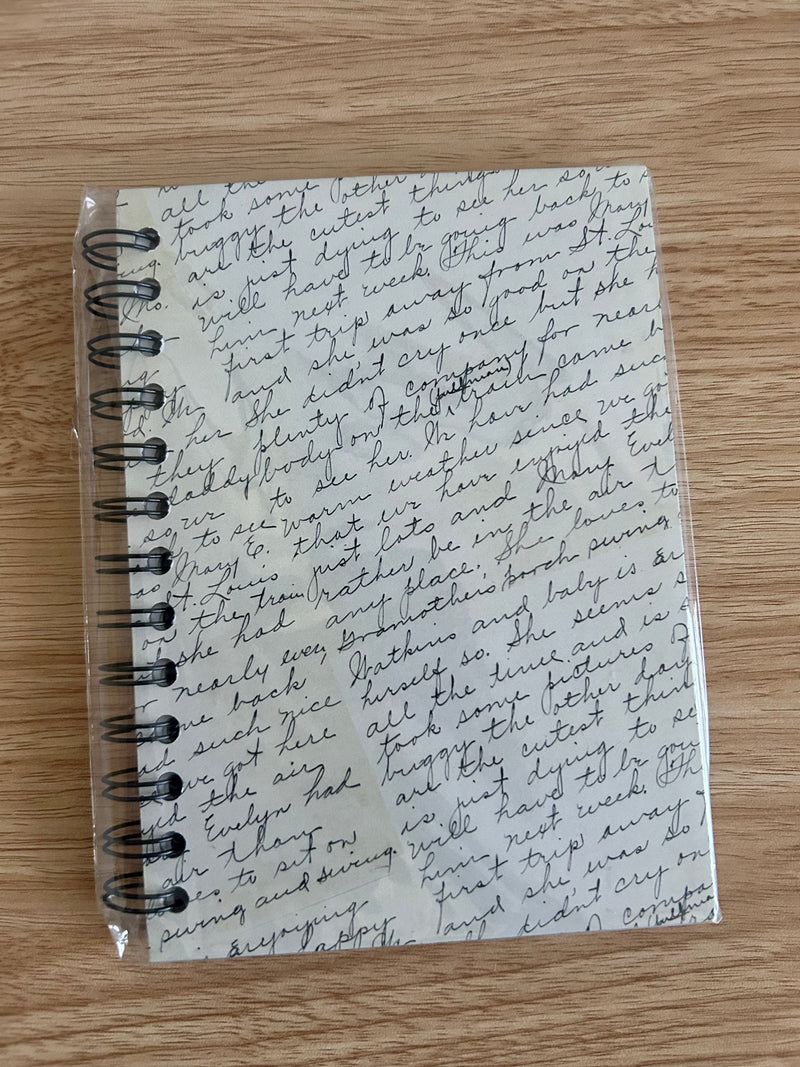 all the
took some
buggy the other
are the cutest things
is just dying to see her so
will have to be going back to
him next week. This was Mary
first trip away from St. Lou
and she was so good on the
her She didn't cry once but she h
they plenty of company for near
daddy body on the train came b
so we to see her. We have had suc
d to see warm weather since we go
as Mary E. that we have enjoyed the
St. Louis just lots and Mary Evel
on the train rather be in the air t
she had any place. She loves to
or nearly every Gramother's porch swing
me back Watkins and baby is
ad such nice herself so. She seems s
we got here all the time and is s
yed the air took some pictures of
Evelyn had buggy the other day
air than are the cutest thin
oves to sit on is just dying to se
swing and swing. will have to be goin
enjoying him next week. Th
happy first trip away
and she was so
didn't cry on
of compa